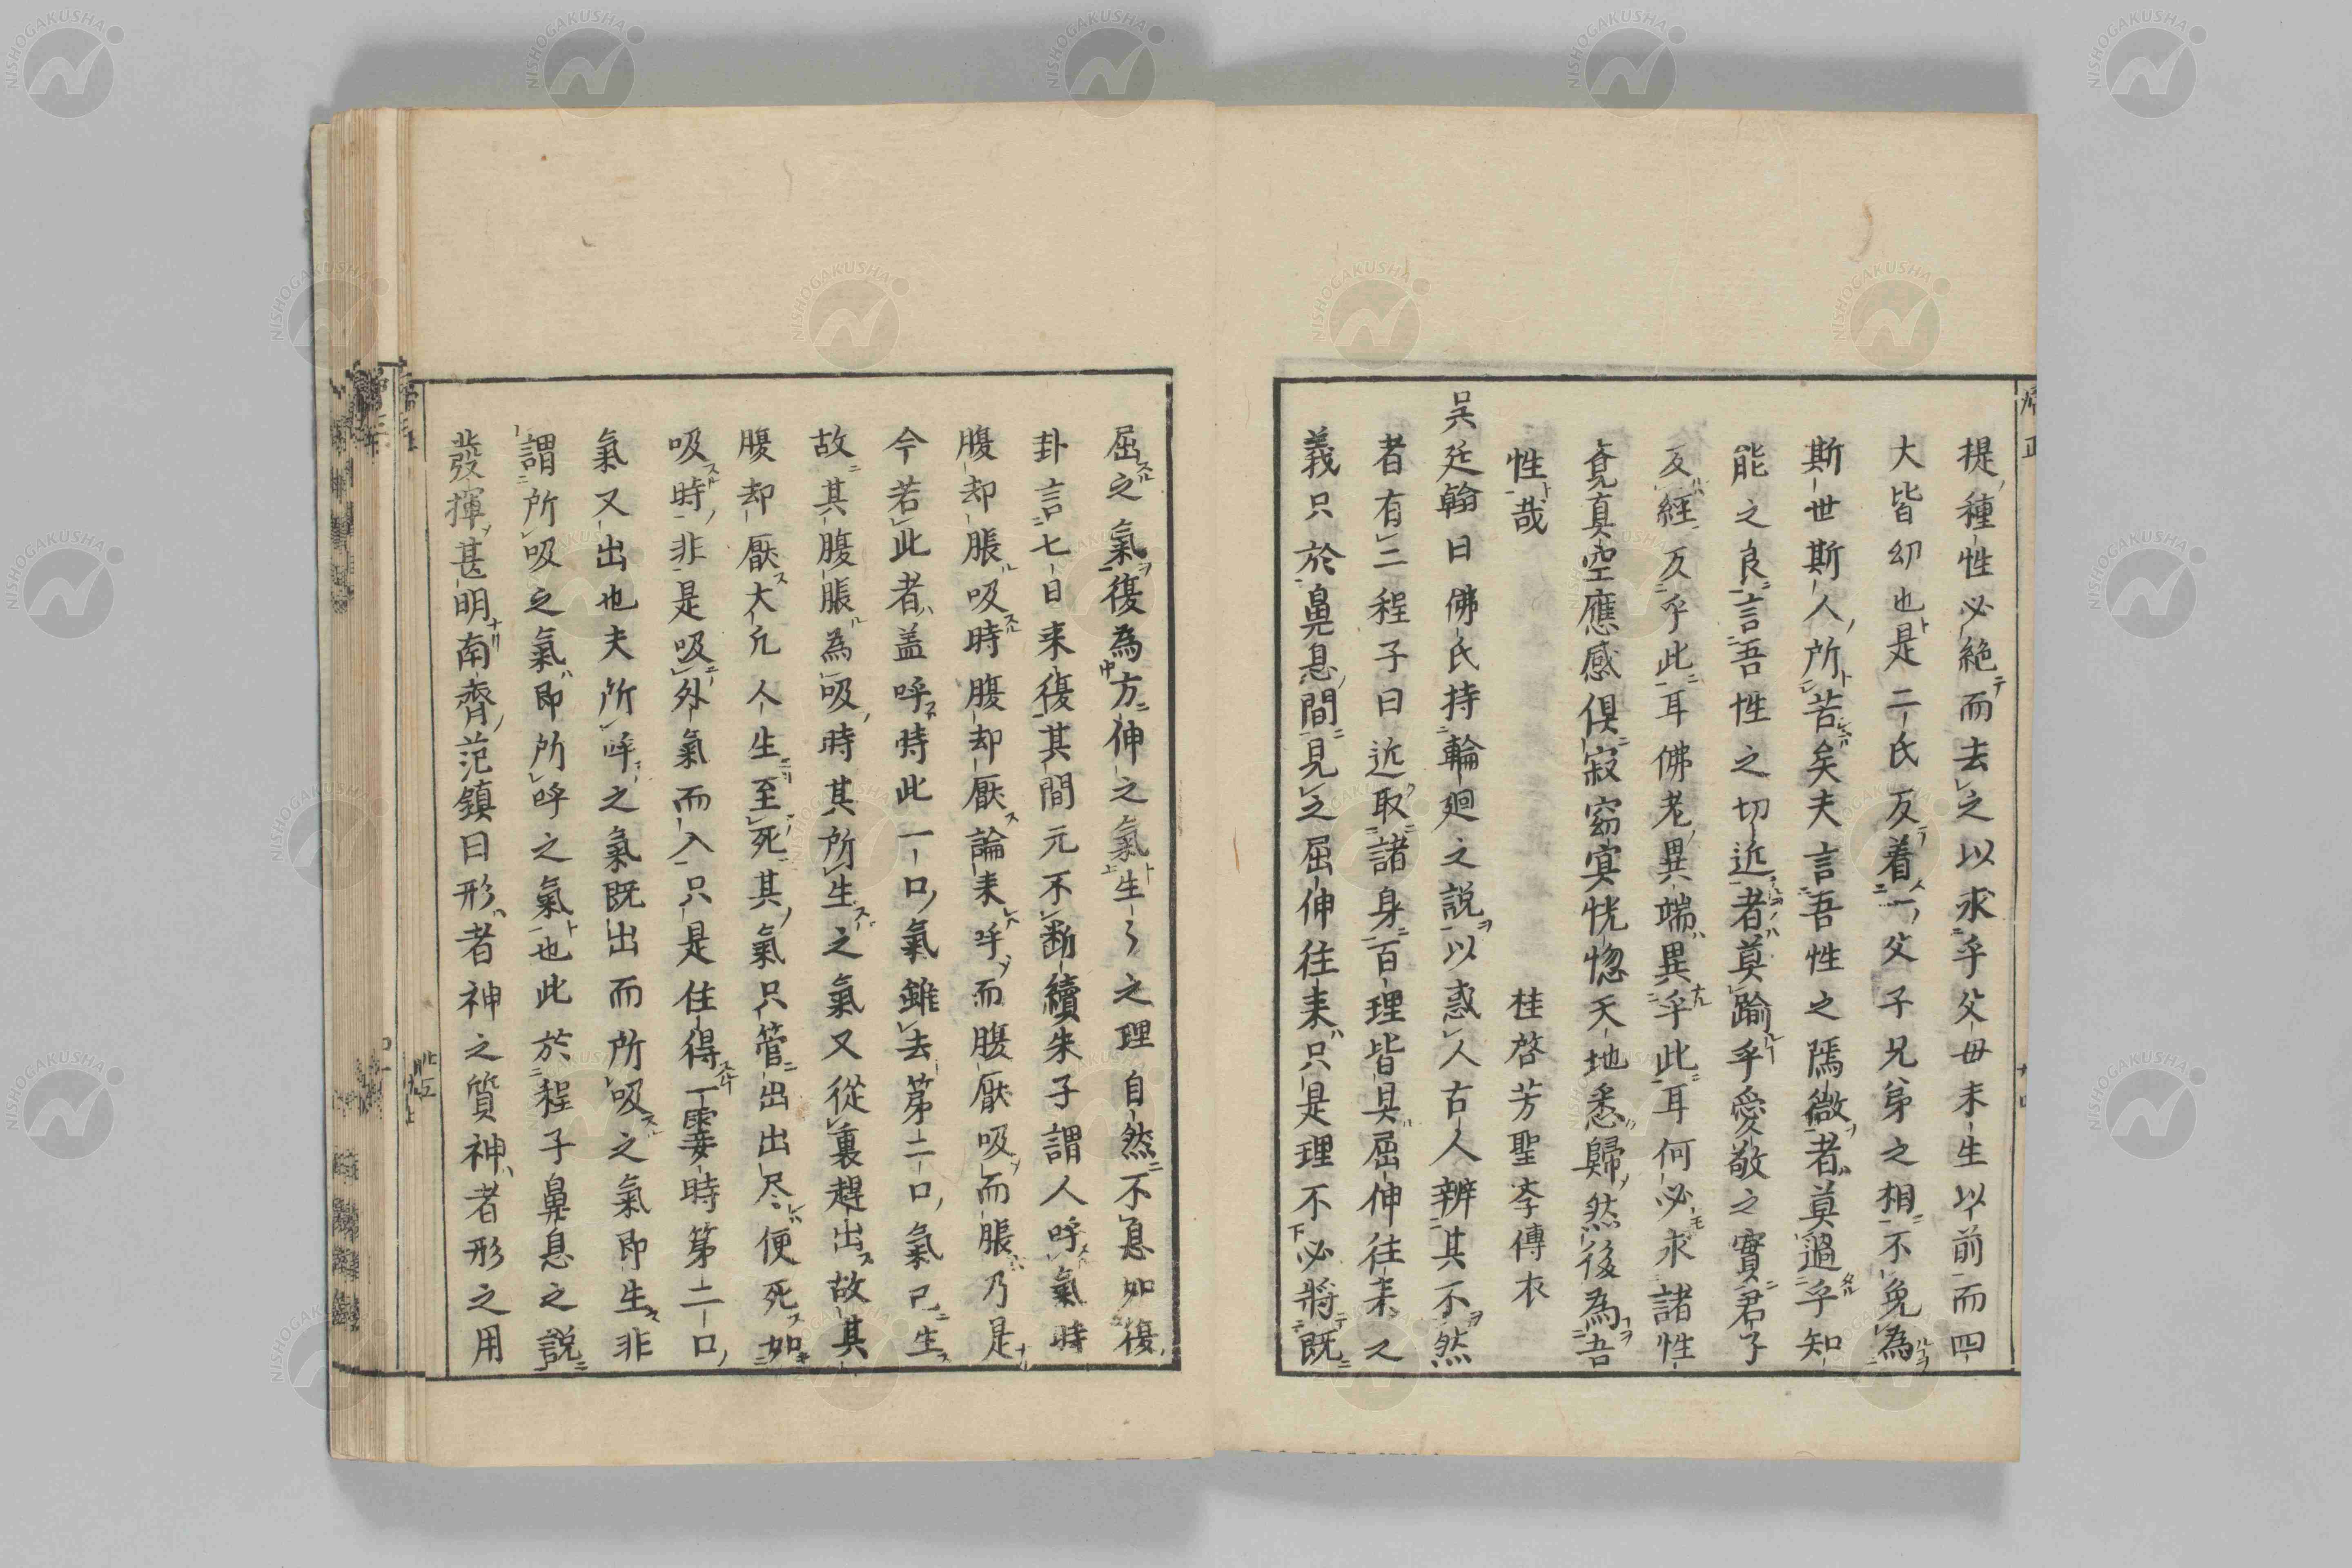 提種性必絶而去之以求乎父母未生以前而四
大皆幻也是二氏反着一父子兄弟之相不免為
斯世斯人所苦矣夫言吾性之隱微者莫過乎知
能之良言吾性之切近者莫踰乎愛敬之實君子
反經反乎此耳佛老異端異乎此耳何必求諸性
竟真空應感俱寂窈冥恍惚天地悉歸然後為吾
性哉 桂啓芳聖李傳衣
吳廷翰曰佛氏持輪廻之説以惑人古人辨其不然
者有二程子曰近取諸身百理皆具屈伸往来之
義只於鼻息間見之屈伸往来只是理不必將既
屈之氣復為方伸之氣生々之理自然不息如復
卦言七日来復其間元不断續朱子謂人呼氣時
腹却脹吸時腹却厭論来呼而腹厭吸而脹乃是
今若此者盖呼時此一口氣雖去第二口氣已生
故其腹脹為吸時其所生之氣又從裏趕出故其
腹却厭大凢人生至死其氣只管出出尽便死如
吸時非是吸外氣而入只是住得一霎時第二口
氣又出也夫所呼之氣既出而所吸之氣即生非
謂所吸之氣即所呼之氣也此於程子鼻息之説
發揮甚明南齊范鎮曰形者神之質神者形之用